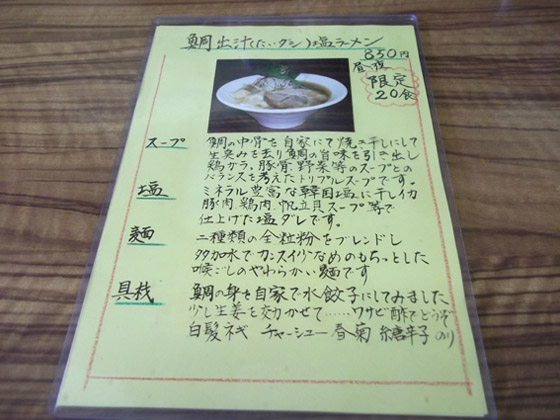 鯛出汁(たいダシ)塩ラーメン
850円
昼夜
限定
20食
スープ
鯛の中骨を自家にて焼き干しにして
生臭みを去り鯛の旨味を引き出し
鶏ガラ、豚骨、野菜等のスープとの
バランスを考えたトリプルスープです。
塩
ミネラル豊富な韓国塩に干しイカ
豚肉、鶏肉、帆立貝スープ等で
仕上げた塩ダレです。
麺
二種類の全粒粉をブレンドし
多加水でカンスイ少なめのもちっとした
喉ごしのやわらかい麺です
具材
鯛の身を自家で水餃子にしてみました
少し生姜を効かせて……ワサビ酢でどうぞ
白髪ネギ チャーシュー 春菊 糸唐辛子 のり